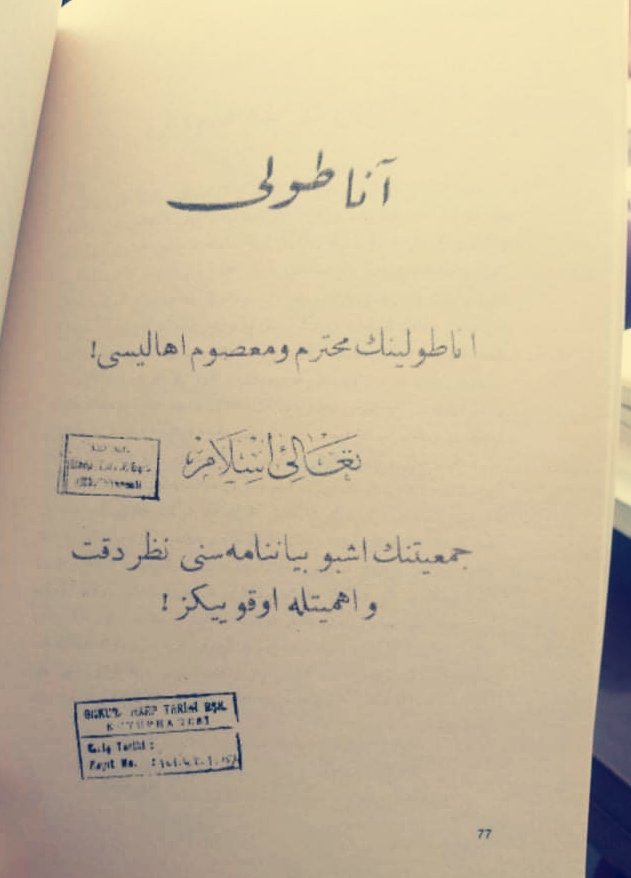 آناطولی
اناطولینك محترم ومعصوم اهالیسی!
تَعَالِئ اِسْلَامْ
جمعیتنك اشبو بیاننامه‌سنی نظر دقت
و اهمیتله اوقوییكز!
GNKUR. HARP TARİHİ BŞK.
KÜTÜPHANESİ
Geliş Tarihi :
Kayıt No. :
77